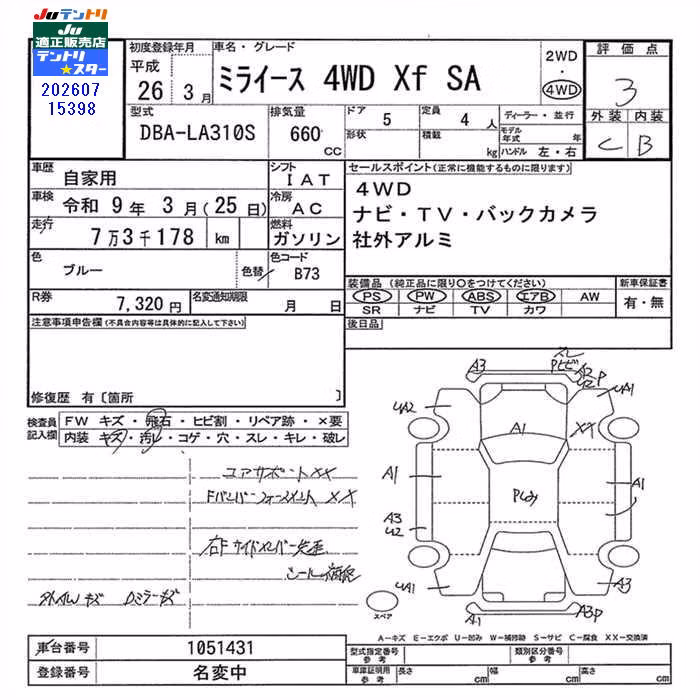 JUテントリ
JU
適正販売店
テントリ
★スター
202607
15398
初度登録年月
平成
26 3月
車名・グレード
ミライース 4WD Xf SA
2WD
・
4WD
評価点
3
外装 内装
C B
型式
DBA-LA310S
排気量
660
CC
ドア 5
形状
定員 4 人
積載 kg
ディーラー・並行
モデル年式 年
ハンドル 左・右
車歴 自家用
シフト IAT
車検 令和 9年 3月(25日)
冷房 AC
走行 7万3千178 km
燃料 ガソリン
色 ブルー
色替
色コード B73
R券 7,320円
名変通知期限 月 日
セールスポイント(正常に機能するものに限ります)
4WD
ナビ・TV・バックカメラ
社外アルミ
装備品(純正品に限り○をつけてください)
PS PW ABS エアB AW
SR ナビ TV カワ
新車保証書
有・無
後日品
注意事項申告欄(不具合内容等は具体的に記入して下さい)
修復歴 有〔箇所 〕
検査員記入欄
FW キズ・飛石・ヒビ割・リペア跡・×要
内装 キズ・汚レ・コゲ・穴・スレ・キレ・破レ
コアサポートXX
右Fサイドメンバー先端
A3
UA1
UA2
A1
XX
A1
A1
A3
U2
UA1
A3
A1
A3P
スペア
A-キズ E-エクボ U-凹み W-補修跡 S-サビ C-腐食 XX-交換済
車台番号 1051431
登録番号 名変中
型式指定番号 参考
類別区分番号 参考
車庫証明用 参考 長さ cm 幅 cm 高さ cm